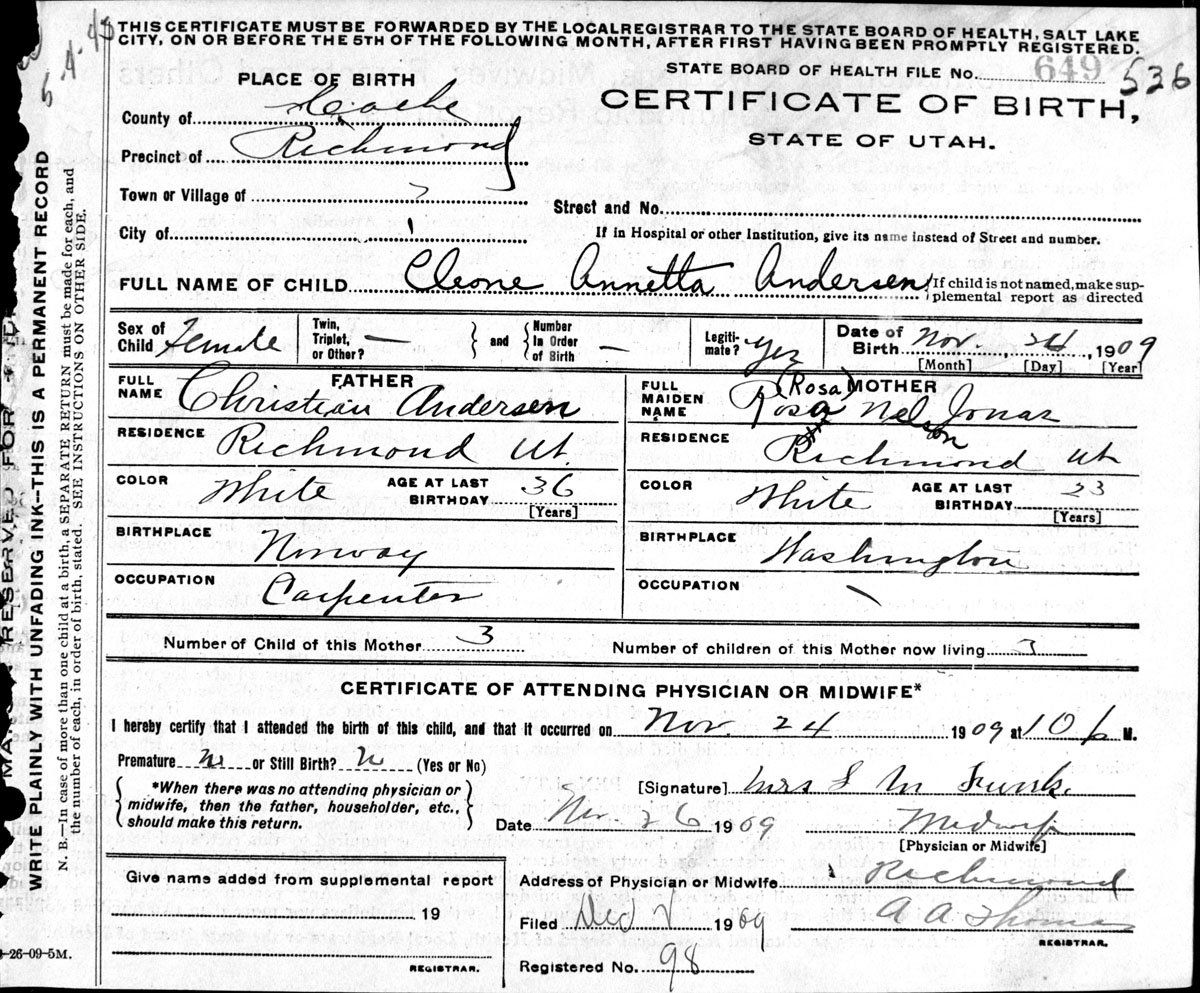 THIS CERTIFICATE MUST BE FORWARDED BY THE LOCAL REGISTRAR TO THE STATE BOARD OF HEALTH, SALT LAKE
CITY, ON OR BEFORE THE 5TH OF THE FOLLOWING MONTH, AFTER FIRST HAVING BEEN PROMPTLY REGISTERED.
PLACE OF BIRTH
STATE BOARD OF HEALTH FILE No. 649 536
County of Cache
CERTIFICATE OF BIRTH,
STATE OF UTAH.
Precinct of Richmond
Town or Village of
Street and No.
City of
If in Hospital or other Institution, give its name instead of Street and number.
FULL NAME OF CHILD Cleone Annetta Andersen
If child is not named, make sup-
plemental report as directed
Sex of Child Female
Twin, Triplet, or Other? —
and
Number In Order of Birth —
Legiti-mate? Yes
Date of Birth Nov. 24, 1909
[Month] [Day] [Year]
FATHER
FULL NAME Christian Andersen
RESIDENCE Richmond Ut.
COLOR White AGE AT LAST BIRTHDAY 36
[Years]
BIRTHPLACE Norway
OCCUPATION Carpenter
MOTHER
FULL MAIDEN NAME (Rosa) Rosa Nelson Jonas
RESIDENCE Richmond Ut
COLOR White AGE AT LAST BIRTHDAY 23
[Years]
BIRTHPLACE Washington
OCCUPATION
Number of Child of this Mother 3
Number of children of this Mother now living 3
CERTIFICATE OF ATTENDING PHYSICIAN OR MIDWIFE*
I hereby certify that I attended the birth of this child, and that it occurred on Nov. 24 1909 at 10 p M.
Premature No or Still Birth? N (Yes or No)
*When there was no attending physician or
midwife, then the father, householder, etc.,
should make this return.
[Signature] Mrs S M Funk.
Date Nov. 26 1909
Midwife
[Physician or Midwife]
Give name added from supplemental report
19
REGISTRAR.
Address of Physician or Midwife Richmond
Filed Dec 1 1909 A A Thomas
REGISTRAR.
Registered No. 98
RESERVED FOR
WRITE PLAINLY WITH UNFADING INK--THIS IS A PERMANENT RECORD
N. B.—In case of more than one child at a birth, a SEPARATE RETURN must be made for each, and
the number of each, in order of birth, stated. SEE INSTRUCTIONS ON OTHER SIDE.
-26-09-5M.